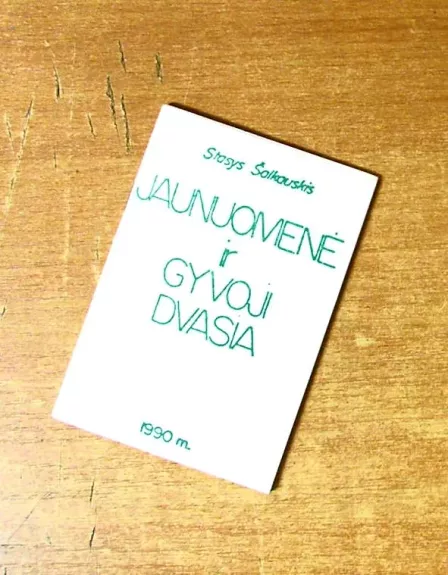 Stasys Šalkauskis
JAUNUOMENĖ
ir
GYVOJI
DVASIA
1990 m.